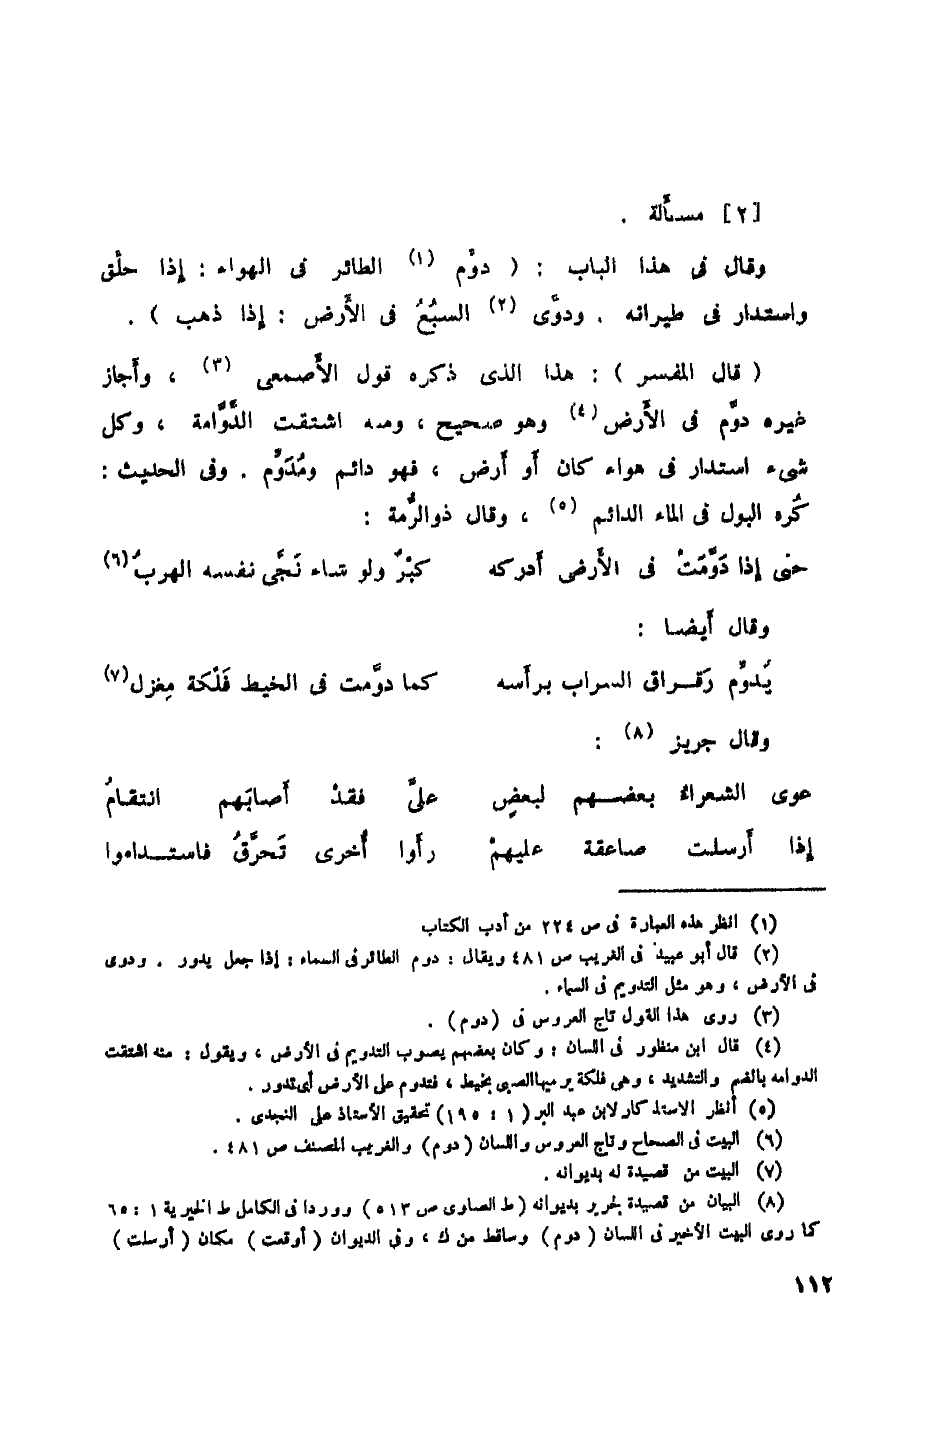 [٢] مسألة .
وقال فى هذا الباب : ( دوَّم (١) الطائر فى الهواء : إِذا حلَّق
واستدار فى طيرانه . ودوَّى (٢) السبُعُ فى الأَرض : إِذا ذهب ) .
( قال المفسر ) : هذا الذى ذكره قول الأَصمعى (٣) ، وأَجاز
غيره دوَّم فى الأَرض (٤) وهو صحيح ، ومنه اشتقت الدَّوَّامة ، وكل
شىء استدار فى هواء كان أَو أَرض ، فهو دائم ومُدَوِّم . وفى الحديث :
كُره البول فى الماء الدائم (٥) ، وقال ذوالرُّمة :
حتى إِذا دَوَّمَتْ فى الأَرض أَدركه كبْرٌ ولو شاء نَجَّى نفسه الهربُ(٦)
وقال أَيضا :
يُدوِّم رَقـراق السراب برأَسه كما دوَّمت فى الخيط فَلْكة مِغزل(٧)
وقال جرير (٨) :
عوى الشعراءُ بعضـهم لبعضٍ علىَّ فقدْ أَصابَهم انتقامُ
إِذا أَرسلت صاعقة عليهمْ رأَوا أُخرى تَحرَّقُ فاستـداموا
(١) انظر هذه العبارة فى ص ٢٢٤ من أدب الكتاب
(٢) قال أبو عبيد فى الغريب ص ٤٨١ ويقال : دوم الطائر فى السماء : إذا جعل يدور . ودوى
فى الأرض ، وهو مثل التدويم فى السماء .
(٣) روى هذا القول تاج العروس فى (دوم) .
(٤) قال ابن منظور فى اللسان : وكان بعضهم يصوب التدويم فى الأرض ، ويقول : منه اشتقت
الدوامه بالضم والتشديد ، وهى فلكة يرميها الصبى بخيط ، فتدوم على الأرض أى تدور .
(٥) أنظر الاستذكار لابن عبد البر ( ١ : ١٩٥ ) تحقيق الأستاذ على النجدى .
(٦) البيت فى الصحاح وتاج العروس واللسان (دوم) والغريب المصنف ص ٤٨١ .
(٧) البيت من قصيدة له بديوانه .
(٨) البيان من قصيدة لجرير بديوانه (ط الصاوى ص ٥١٣ ) ووردا فى الكامل ط الخيرية ١ : ٦٥
كما روى البيت الأخير فى اللسان ( دوم ) وساقط من ك ، وفى الديوان ( أوقعت ) مكان ( أرسلت )
١١٢